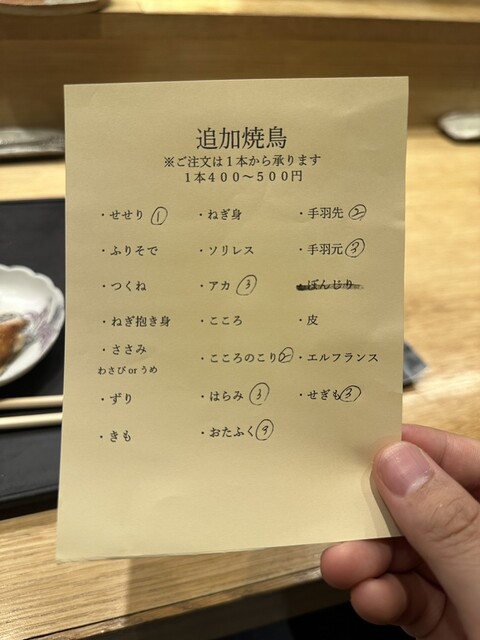 追加焼鳥
※ご注文は１本から承ります
１本４００～５００円
・せせり ①
・ねぎ身
・手羽先 ②
・ふりそで
・ソリレス
・手羽元 ③
・つくね
・アカ ③
・ぼんじり
・ねぎ抱き身
・こころ
・皮
・ささみ
わさび or うめ
・こころのこり ②
・エルフランス
・ずり
・はらみ ③
・せぎも ③
・きも
・おたふく ⑨